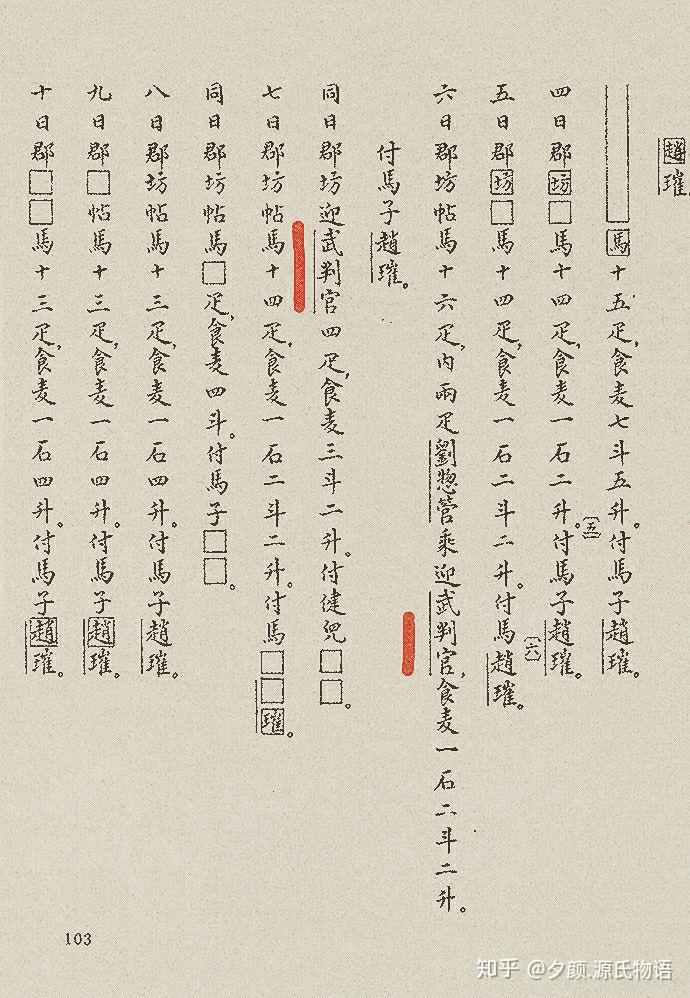 趙璀
馬十五疋,食麦七斗五升。付馬子趙璀。
四日郡坊□馬十四疋,食麦一石二升。〔五〕付馬子趙璀。
五日郡坊□馬十四疋,食麦一石二斗二升。付馬〔六〕趙璀。
六日郡坊帖馬十六疋,内兩疋劉惣管乘迎武判官,食麦一石二斗二升。
付馬子趙璀。
同日郡坊迎武判官四疋,食麦三斗二升。付健兒□□。
七日郡坊帖馬十四疋,食麦一石二斗二升。付馬□□璀。
同日郡坊帖馬□疋,食麦四斗。付馬子□□。
八日郡坊帖馬十三疋,食麦一石四升。付馬子趙璀。
九日郡□帖馬十三疋,食麦一石四升。付馬子趙璀。
十日郡□□馬十三疋,食麦一石四升。付馬子趙璀。
103
知乎 @夕颜.源氏物语